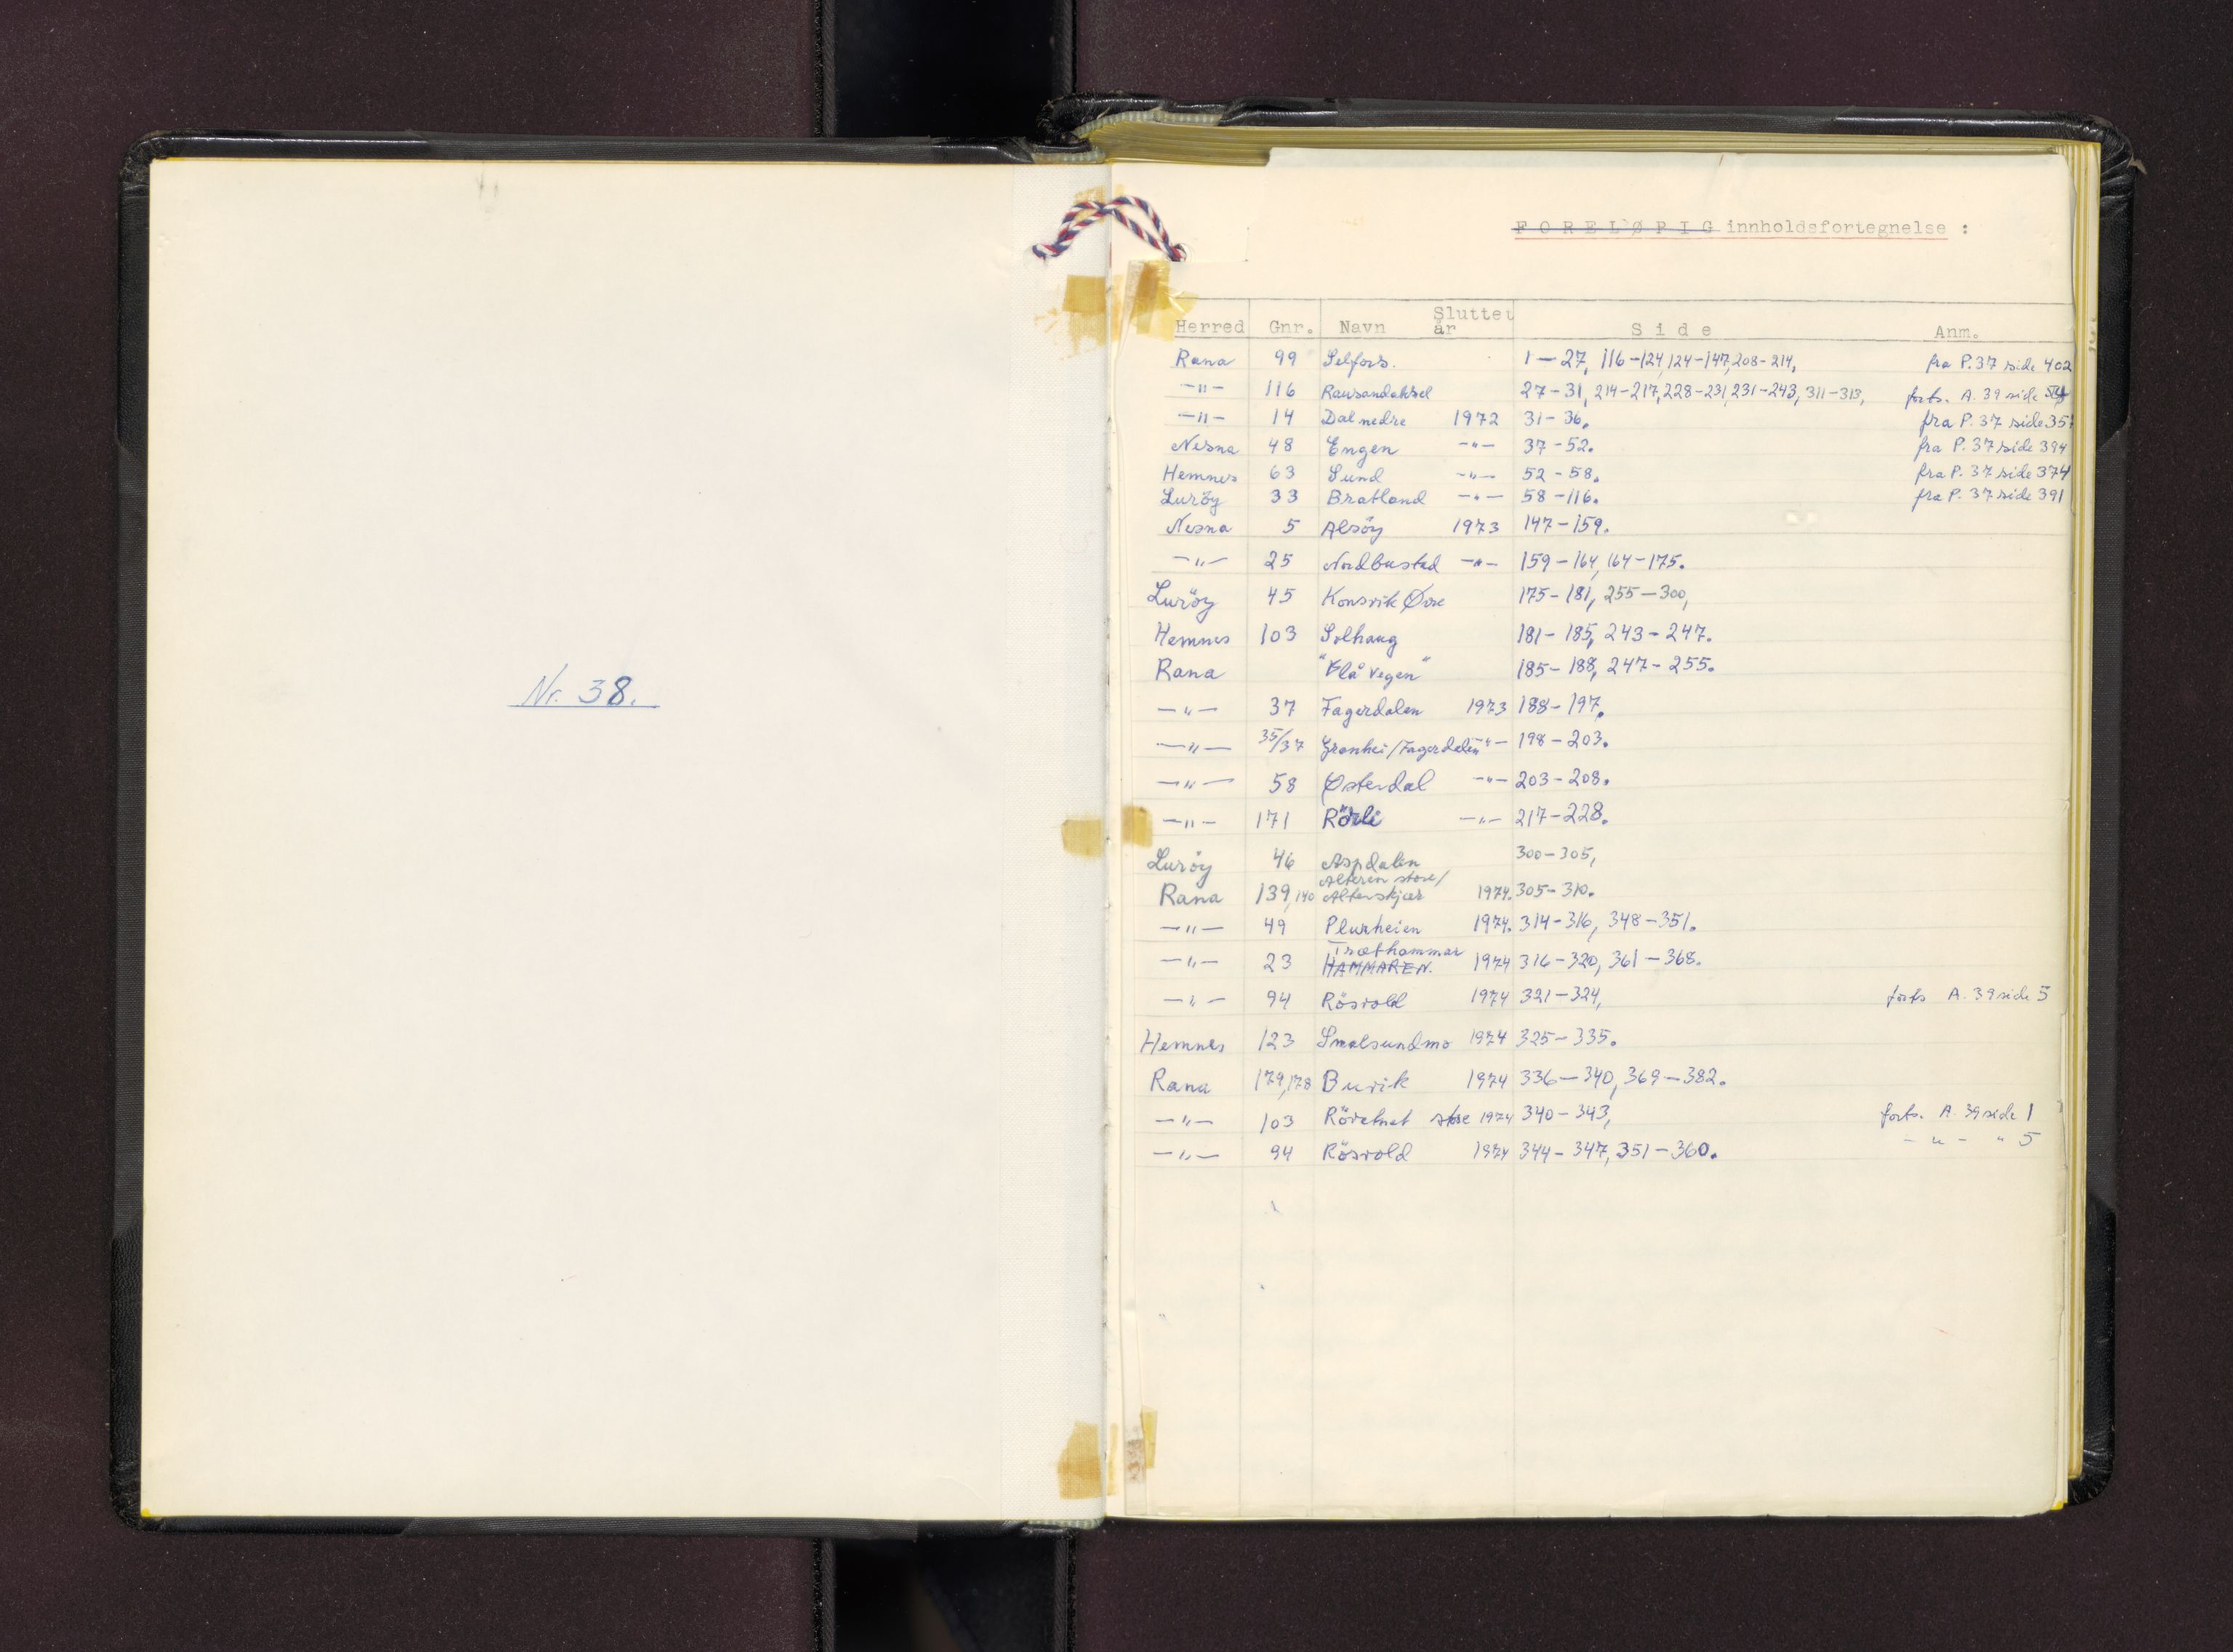 Nr. 38.
FORELØPIG innholdsfortegnelse :
Herred Gnr. Navn Sluttet år Side Anm.
Rana 99 Selfors. 1-27, 116-124, 124-147, 208-214, fra P. 37 side 402
-"- 116 27-31, 214-217, 228-231, 231-243, 311-313, forts. A. 39 side
-"- 14 Dal nedre 1972 31-36. fra P. 37 side 35
Nesna 48 Engen -"- 37-52. fra P. 37 side 394
Hemnes 63 Sund -"- 52-58. fra P. 37 side 374
Luröy 33 Bratland -"- 58-116. fra P. 37 side 391
Nesna 5 Alsöy 1973 147-159.
-"- 25 Nordbustad -"- 159-164, 164-175.
Luröy 45 Konsvik Øvre 175-181, 255-300,
Hemnes 103 Solhaug 181-185, 243-247.
Rana "Blå vegen" 185-188, 247-255.
-"- 37 Fagerdalen 1973 188-197.
-"- 35/37 Granhei/Fagerdalen -"- 198-203.
-"- 58 Østerdal -"- 203-208.
-"- 171 Rörli -"- 217-228.
Luröy 46 Aspdalen 300-305,
Rana 139, 140 Alteren store/ Alterskjær 1974. 305-310.
-"- 49 Plurheien 1974. 314-316, 348-351.
-"- 23 Træthammar HAMMAREN. 1974 316-320, 361-368.
-"- 94 Rösvold 1974 321-324, forts A. 39 side 5
Hemnes 123 Smalsundmo 1974 325-335.
Rana 179, 178 Burik 1974 336-340, 369-382.
-"- 103 store 1974 340-343, forts. A. 39 side 1
-"- 94 Rösvold 1974 344-347, 351-360. -"- " 5